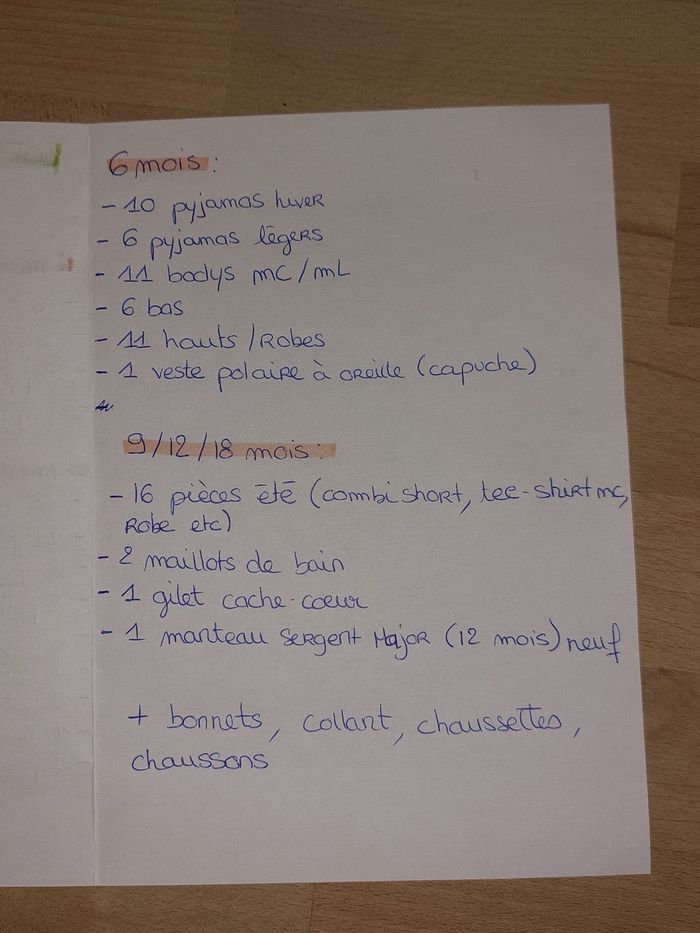 6 mois :
- 10 pyjamas hiver
- 6 pyjamas légers
- 11 bodys mc/mL
- 6 bas
- 11 hauts /Robes
- 1 veste polaire à oreille (capuche)
9/12/18 mois :
- 16 pièces été (combi short, tee-shirt mc,
Robe etc)
- 2 maillots de bain
- 1 gilet cache-coeur
- 1 manteau Sergent Major (12 mois) neuf
+ bonnets, collant, chaussettes,
chaussons